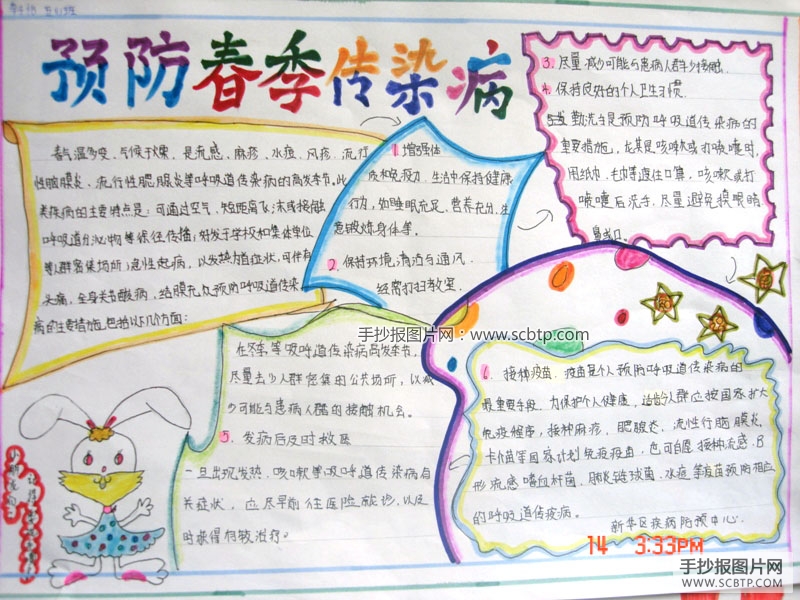 预防春季传染病
春气温多变，气候干燥，是流感、麻疹、水痘、风疹、流行
性脑膜炎、流行性腮腺炎等呼吸道传染病的高发季节。此
类疾病的主要特点是：可通过空气、短距离飞沫或接触
呼吸道分泌物等途径传播；好发于学校和集体单位
等人群密集场所；急性起病，以发热为首症状，可伴有
头痛，全身关节酸痛，结膜充血预防呼吸道传染
病的主要措施，包括以下几个方面：
1. 增强体
质和免疫力，生活中保持健康
行为，如睡眠充足、营养充分，生
意锻炼身体等。
2. 保持环境清洁与通风
经常打扫教室
3. 尽量减少可能与患病人群少接触.
4. 保持良好的个人卫生习惯.
勤洗手是预防呼吸道传染病的
重要措施，尤其是咳嗽或打喷嚏时，
用纸巾、毛巾等遮住口鼻，咳嗽或打
喷嚏后洗手，尽量避免摸眼睛
鼻或口。
在冬季等呼吸道传染病高发季节，
尽量去少人群密集的公共场所，以减
少可能与患病人群的接触机会。
5. 发病后及时救医
一旦出现发热、咳嗽等呼吸道传染病相
关症状，应尽早前往医院就诊，以及
时获得有效治疗。
6. 接种疫苗. 疫苗是个人预防呼吸道传染病的
最重要手段，为保护个人健康，适龄人群应按国家扩大
免疫程序，接种麻疹、腮腺炎、流性行脑膜炎、
卡介苗等国家计划免疫疫苗，也可自愿接种流感、B
形流感嗜血杆菌、肺炎链球菌、水痘等疫苗预防相应
的呼吸道传疾病。
新华区疾病防预中心.
手抄报图片网：www.scbtp.com
14 3:33PM
手抄报图片网
WWW.SCBTP.COM